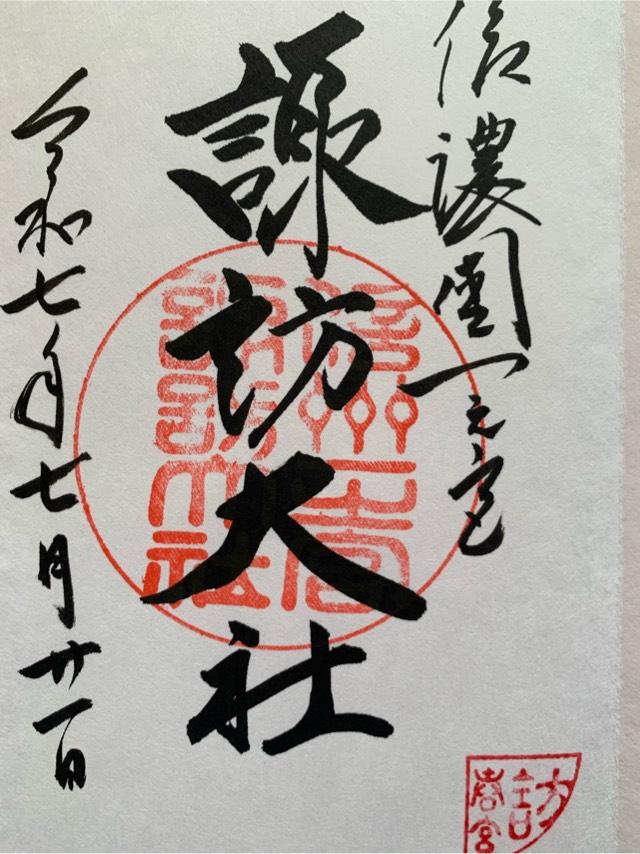 信濃國一之宮
諏訪大社
信州一宮
諏訪大社
令和七年七月廿一日
春宮